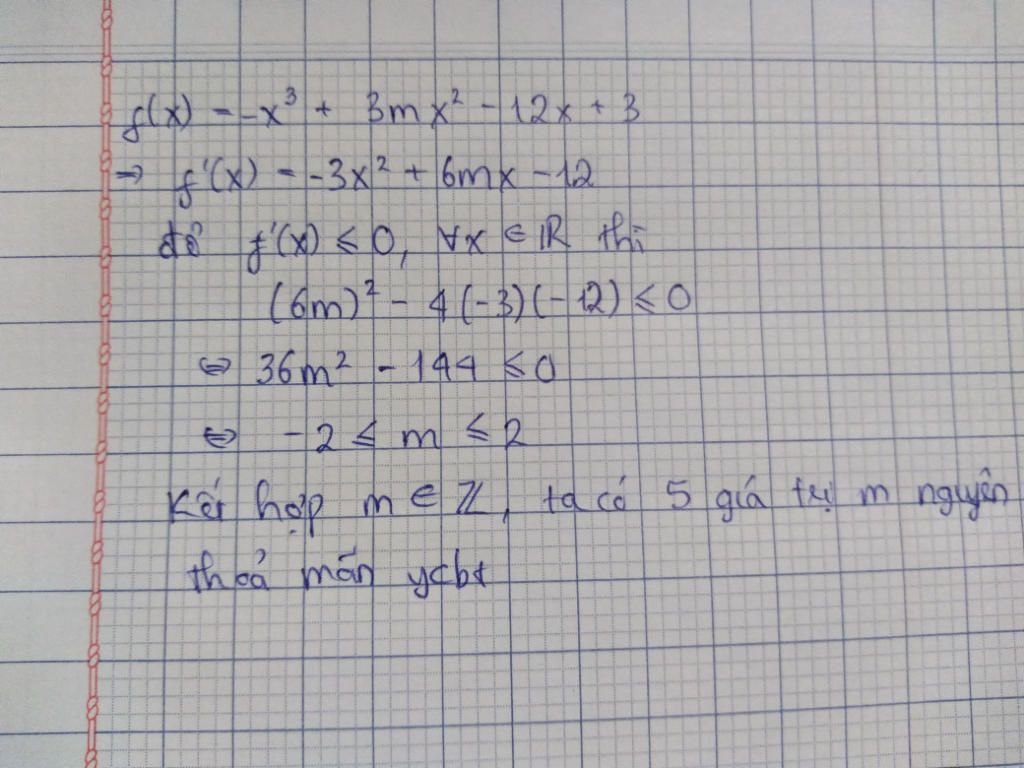 f(x) = -x³ + 3mx² - 12x + 3
⇒ f'(x) = -3x² + 6mx - 12
để f'(x) ≤ 0, ∀x ∈ ℝ thì
(6m)² - 4(-3)(-12) ≤ 0
⇔ 36m² - 144 ≤ 0
⇔ -2 ≤ m ≤ 2
Kết hợp m ∈ ℤ, ta có 5 giá trị m nguyên
thoả mãn ycbt